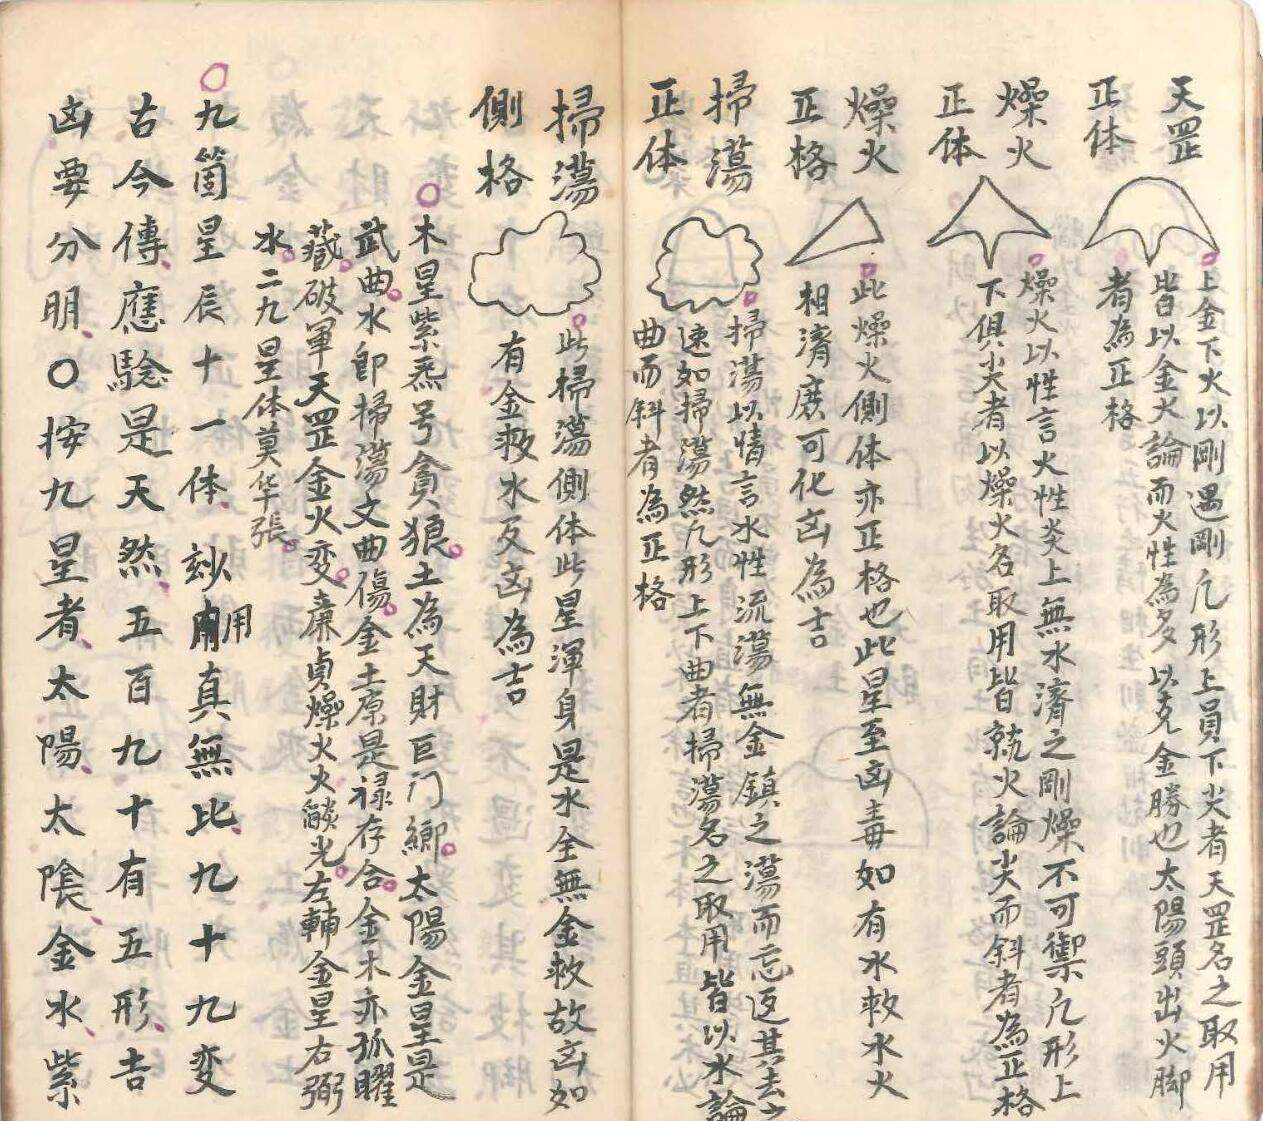 天罡
正体
上金下火以剛遇剛凡形上員下尖者天罡名之取用
皆以金火論而火性為多以克金勝也太陽頭出火脚
者為正格
燥火
正体
燥火以性言火性炎上無水濟之剛燥不可禦凡形上
下俱尖者以燥火名取用皆就火論尖而斜者為正格
燥火
正格
此燥火側体亦正格也此星至凶毒如有水救水火
相濟廣可化凶為吉
掃蕩
正体
掃蕩以情言水性流蕩無金鎮之蕩而忘返其去之
速如掃蕩然凡形上下曲者掃蕩名之取用皆以水論
曲而斜者為正格
掃蕩
側格
此掃蕩側体此星渾身是水全無金救故凶如
有金救水反凶為吉
木星紫炁号貪狼土為天財巨门鄉太陽金星是
武曲水即掃蕩文曲傷金土原是禄存合金木亦孤曜
藏破軍天罡金火变廉貞燥火火燄光左輔金星右弼
水二九星体莫华張
九箇星辰十一体玅用真無比九十九变
古今傳應驗是天然五百九十有五形吉
凶要分明〇按九星者太陽太陰金水紫